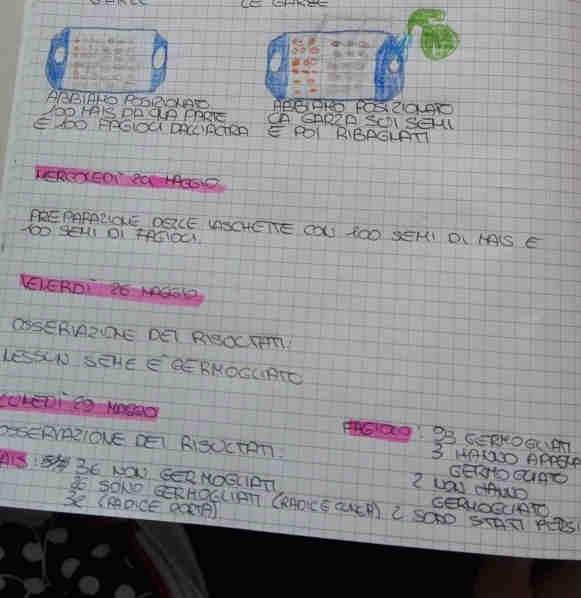 LE GARZE
ABBIAMO POSIZIONATO
100 MAIS DA UNA PARTE
E 100 FAGIOLI DALL'ALTRA
ABBIAMO POSIZIONATO
LA GARZA SUI SEMI
E POI RIBAGNATI
MERCOLEDÌ 24 MAGGIO
PREPARAZIONE DELLE VASCHETTE CON 100 SEMI DI MAIS E
100 SEMI DI FAGIOLI.
VENERDÌ 26 MAGGIO
OSSERVAZIONE DEI RISULTATI:
NESSUN SEME E' GERMOGLIATO
LUNEDÌ 29 MAGGIO
OSSERVAZIONE DEI RISULTATI:
MAIS: 36 NON GERMOGLIATI
SONO GERMOGLIATI (RADICE LUNGA)
(RADICE CORTA)
FAGIOLO: 93 GERMOGLIATI
3 HANNO APPENA
GERMOGLIATO
2 NON HANNO
GERMOGLIATO
2 SONO STATI PERSI